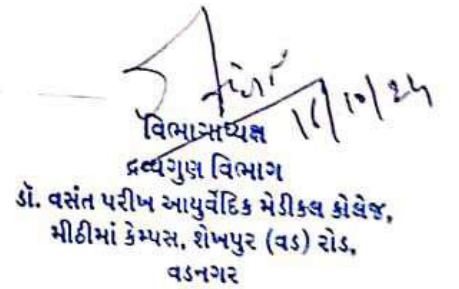 વિભાગાધ્યક્ષ
દ્રવ્યગુણ વિભાગ
ડૉ. વસંત પરીખ આયુર્વેદિક મેડીકલ કોલેજ,
મીઠીમાં કેમ્પસ, શેખપુર (વડ) રોડ,
વડનગર